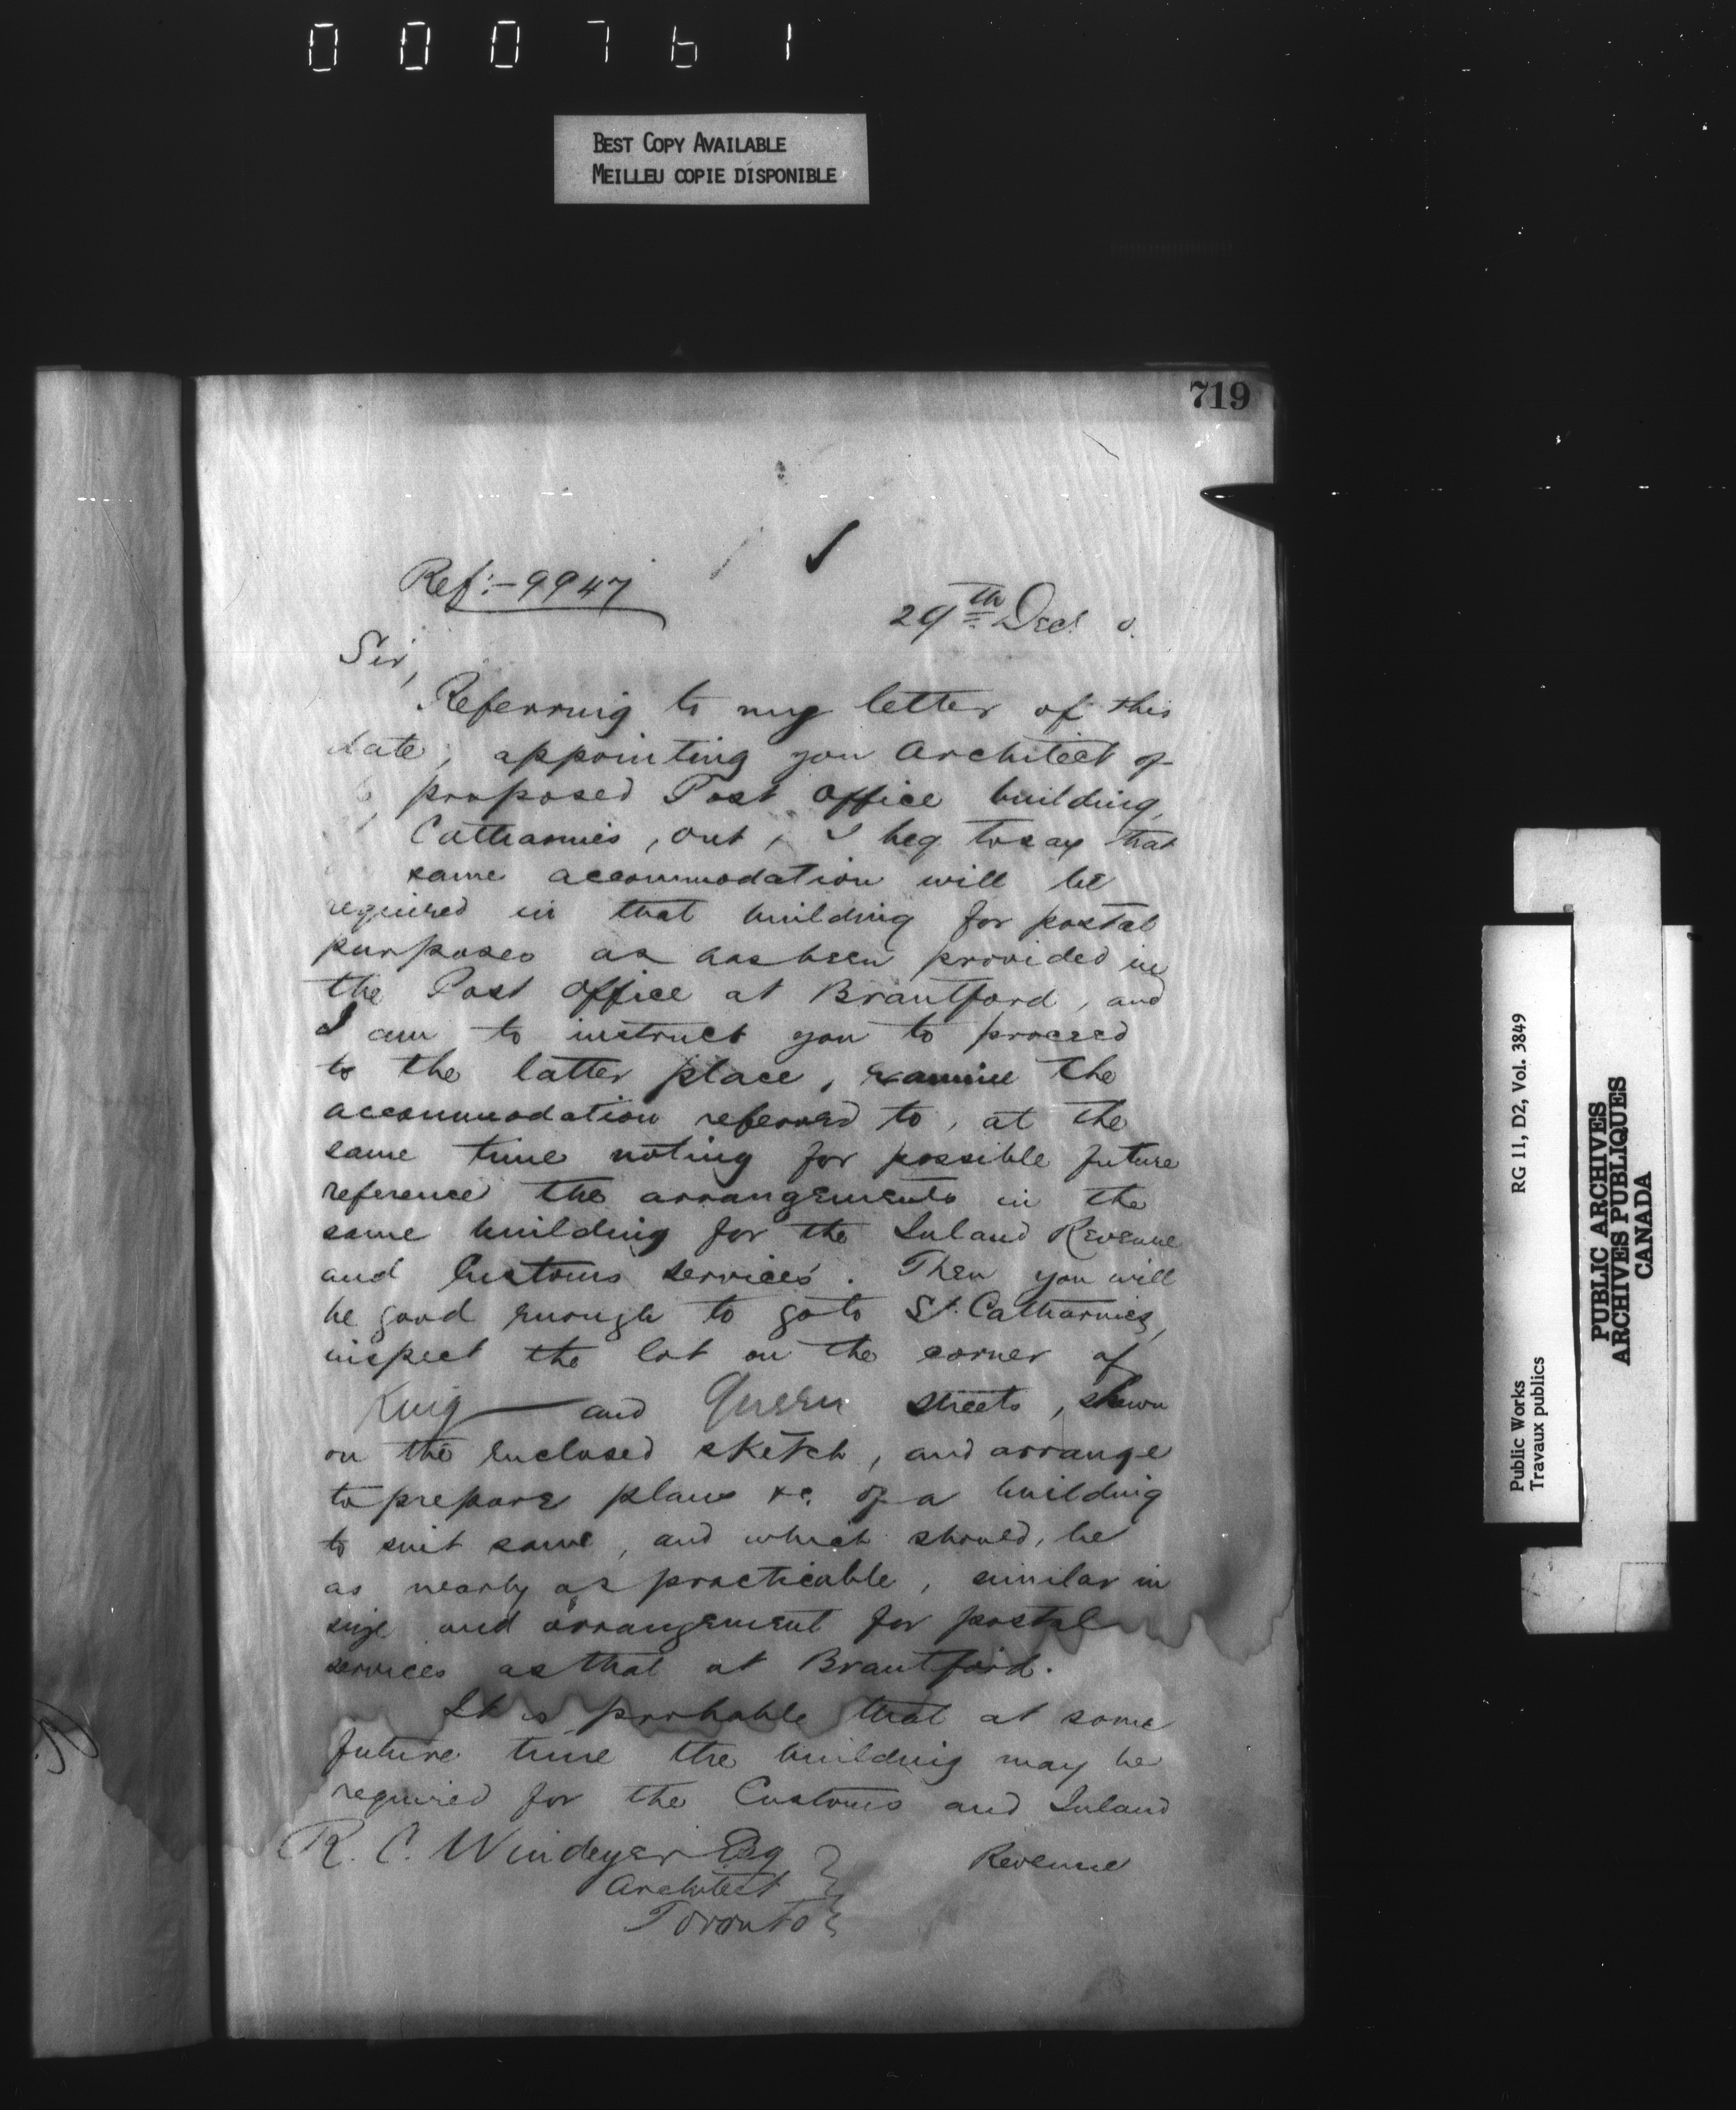 000761
BEST COPY AVAILABLE
MEILLEU COPIE DISPONIBLE
719
Ref:- 9947
29th Dec.
Sir,
Referring to my letter of this
date, appointing you Architect of
proposed Post Office building,
Catharines, Ont, I beg to say that
same accommodation will be
required in that building for postal
purposes as has been provided in
the Post Office at Brantford, and
I am to instruct you to proceed
to the latter place, examine the
accommodation referred to, at the
same time noting for possible future
reference the arrangements in the
same building for the Inland Revenue
and Customs services. Then you will
be good enough to go to St. Catharines,
inspect the lot on the corner of
King and Queen streets, shewn
on the enclosed sketch, and arrange
to prepare plans &c. of a building
to suit same, and which should, be
as nearly as practicable, similar in
size and arrangement for postal
services as that at Brantford.
It is probable that at some
future time the building may be
required for the Customs and Inland
Revenue
R. C. Windeyer Esq
Architect
Toronto
RG 11, D2, Vol. 3849
Public Works
Travaux publics
PUBLIC ARCHIVES
ARCHIVES PUBLIQUES
CANADA